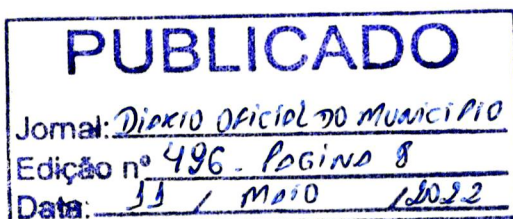 PUBLICADO
Jornal: DIARIO OFICIAL DO MUNICIPIO
Edição nº 496 - PAGINA 8
Data: 11 / MAIO / 2022